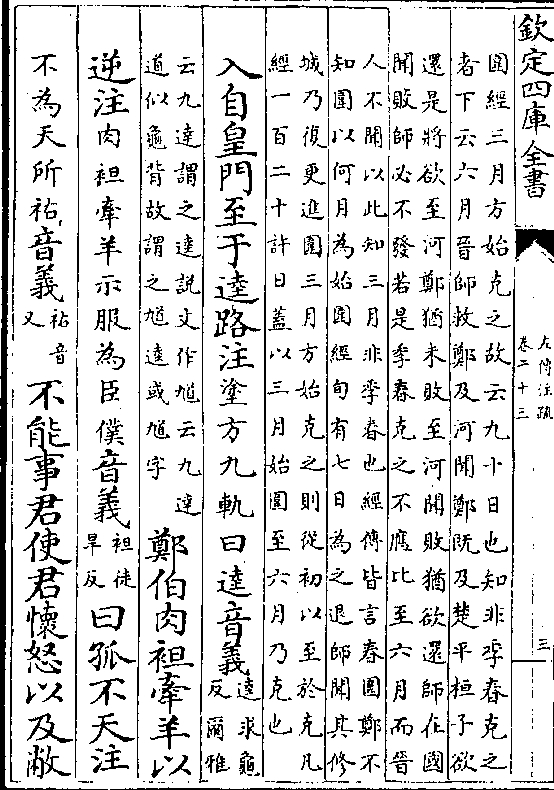 欽定四庫全書
左傳注疏
卷二十三
三
圍經三月方始克之故云九十日也知非季春克之
者下云六月晉師救鄭及河聞鄭既及楚平桓子欲
還是將欲至河鄭猶未敗至河聞敗猶欲還師在國
聞敗師必不發若是季春克之不應比至六月而晉
人不聞以此知三月非季春也經傳皆言春圍鄭不
知圍以何月為始圍經旬有七日為之退師聞其修
城乃復更進圍三月方始克之則從初以至於克凡
經一百二十許日蓋以三月始圍至六月乃克也
入自皇門至于逵路注塗方九軌曰逵音義逵求龜反爾雅
云九達謂之逵説文作馗云九達道似龜背故謂之馗逵或馗字鄭伯肉袒牽羊以
逆注肉袒牽羊示服為臣僕音義袒徒旱反曰孤不天注
不為天所祐音義祐音又不能事君使君懷怒以及敝